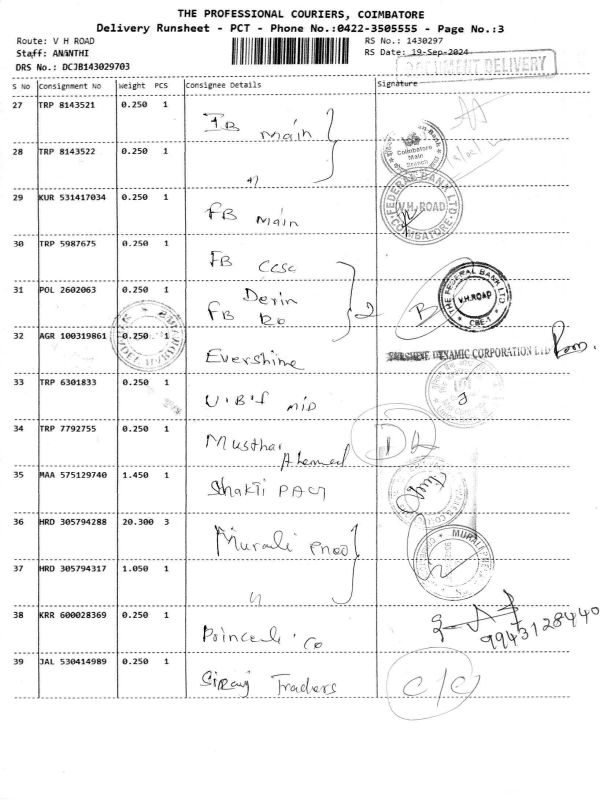 THE PROFESSIONAL COURIERS, COIMBATORE
Delivery Runsheet - PCT - Phone No.:0422-3505555 - Page No.:3
Route: V H ROAD
RS No.: 1430297
Staff: ANANTHI
RS Date: 19-Sep-2024
DRS No.: DCJB143029703
DOCUMENT DELIVERY
S No Consignment No Weight PCS Consignee Details Signature
27 TRP 8143521 0.250 1 FB main
28 TRP 8143522 0.250 1 "
Coimbatore
Main
Branch
29 KUR 531417034 0.250 1 FB main
FEDERAL BANK LTD
V.H. ROAD
COIMBATORE
30 TRP 5987675 0.250 1 FB CCSC
31 POL 2602063 0.250 1 Derin
FB Ro
2 B
THE FEDERAL BANK LTD
V.H.ROAD
CBE-1
32 AGR 100319861 0.250 1 Evershine
DYNAMIC CORPORATION LTD
33 TRP 6301833 0.250 1 U.B.I mid
34 TRP 7792755 0.250 1 Musthar
Ahamed
35 MAA 575129740 1.450 1 Shakti
36 HRD 305794288 20.300 3 Murali Prod
MURALI
37 HRD 305794317 1.050 1 "
38 KRR 600028369 0.250 1 Co
9943128440
39 JAL 530414989 0.250 1 Siraj Traders C/C